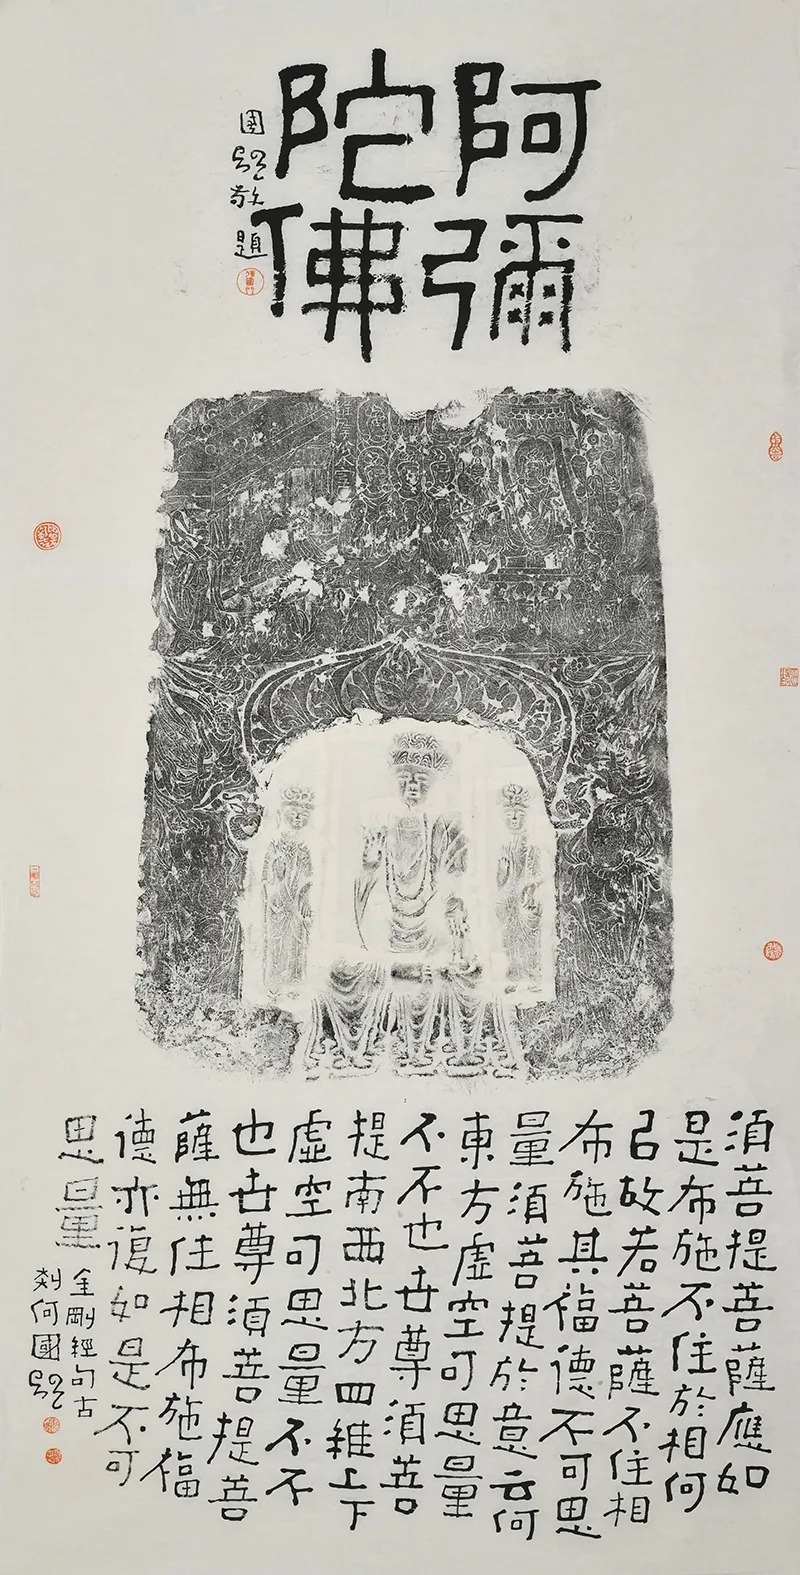 阿彌
陀佛
國門敬題
須菩提菩薩應如
是布施不住於相何
以故若菩薩不住相
布施其福德不可思
量須菩提於意云何
東方虛空可思量
不不也世尊須菩
提南西北方四維上下
虛空可思量不不
也世尊須菩提菩
薩無住相布施福
德亦復如是不可
思量
金剛經句古
剡何國門